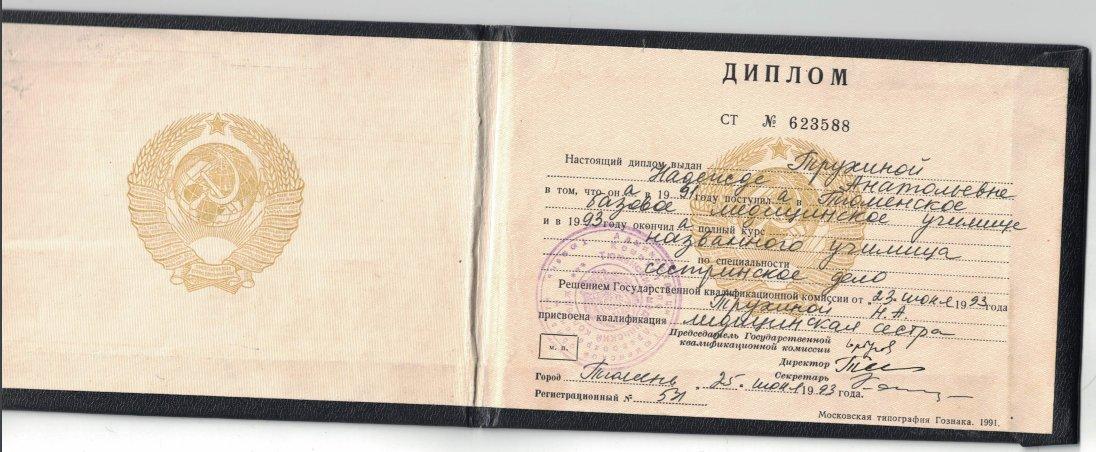 ДИПЛОМ
СТ № 623588
Настоящий диплом выдан Трухиной
Надежде Анатольевне
в том, что она в 1991 году поступила в Тюменское
базовое медицинское училище
и в 1993 году окончила полный курс
названного училища
по специальности
сестринское дело
Решением Государственной квалификационной комиссии от 23 июня 1993 года
Трухиной Н.А.
присвоена квалификация медицинская сестра
Председатель Государственной
квалификационной комиссии
М. П.
Директор
Секретарь
Город Тюмень 25 июня 1993 года.
Регистрационный №
Московская типография Гознака. 1991.